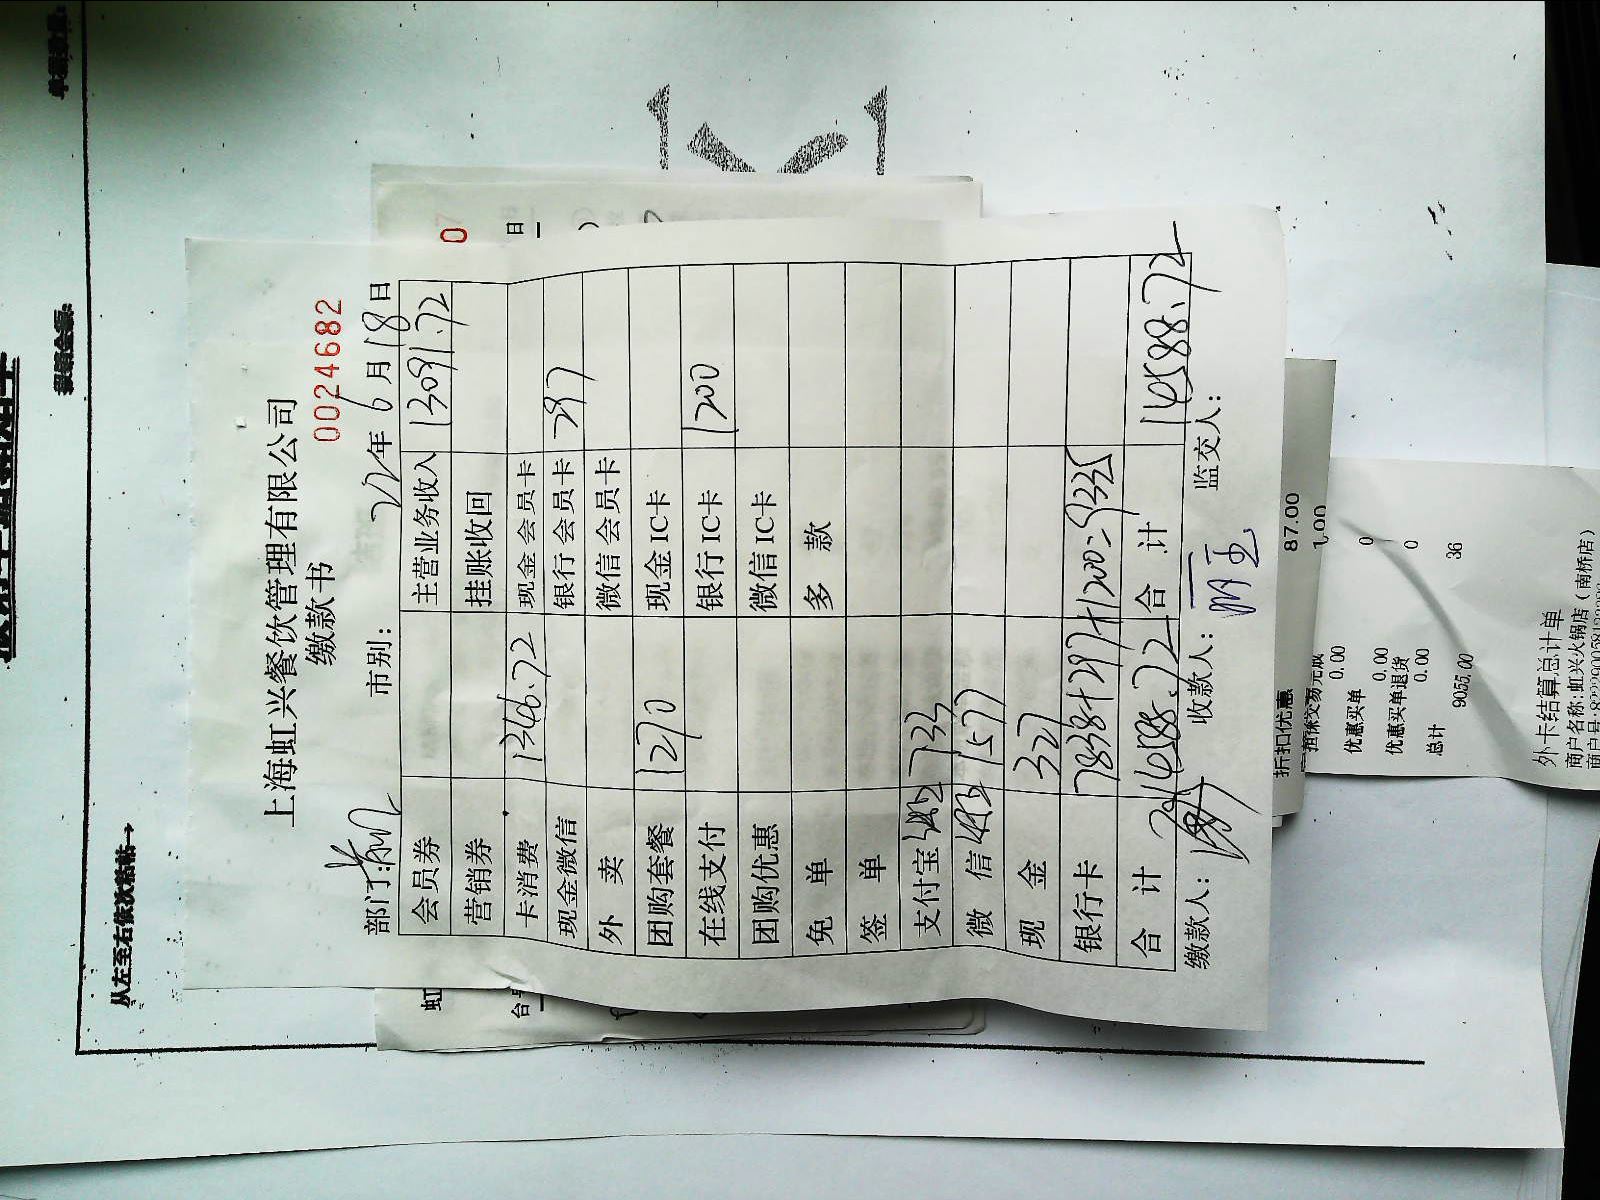 从左至右依次粘贴→
上海虹兴餐饮管理有限公司
缴款书 0024682
部门: 市别: 22年6月18日
会员券 主营业务收入 13091.72
营销券 挂账收回
卡消费 1346.72 现金会员卡
现金微信 银行会员卡 297
外 卖 微信会员卡
团购套餐 1270 现金IC卡
在线支付 银行IC卡 1200
团购优惠 微信IC卡
免 单 多 款
签 单
支付宝 733
微 信 1577
现 金 327
银行卡 7838+297+1200=9335
合 计 14588.72 合 计 14588.72
缴款人: 收款人: 监交人:
折扣优惠 87.00
1.00
0.00 0
优惠买单
0.00 0
优惠买单退货
0.00 36
总计
9055.00
外卡结算总计单
商户名称:虹兴火锅店(南桥店)